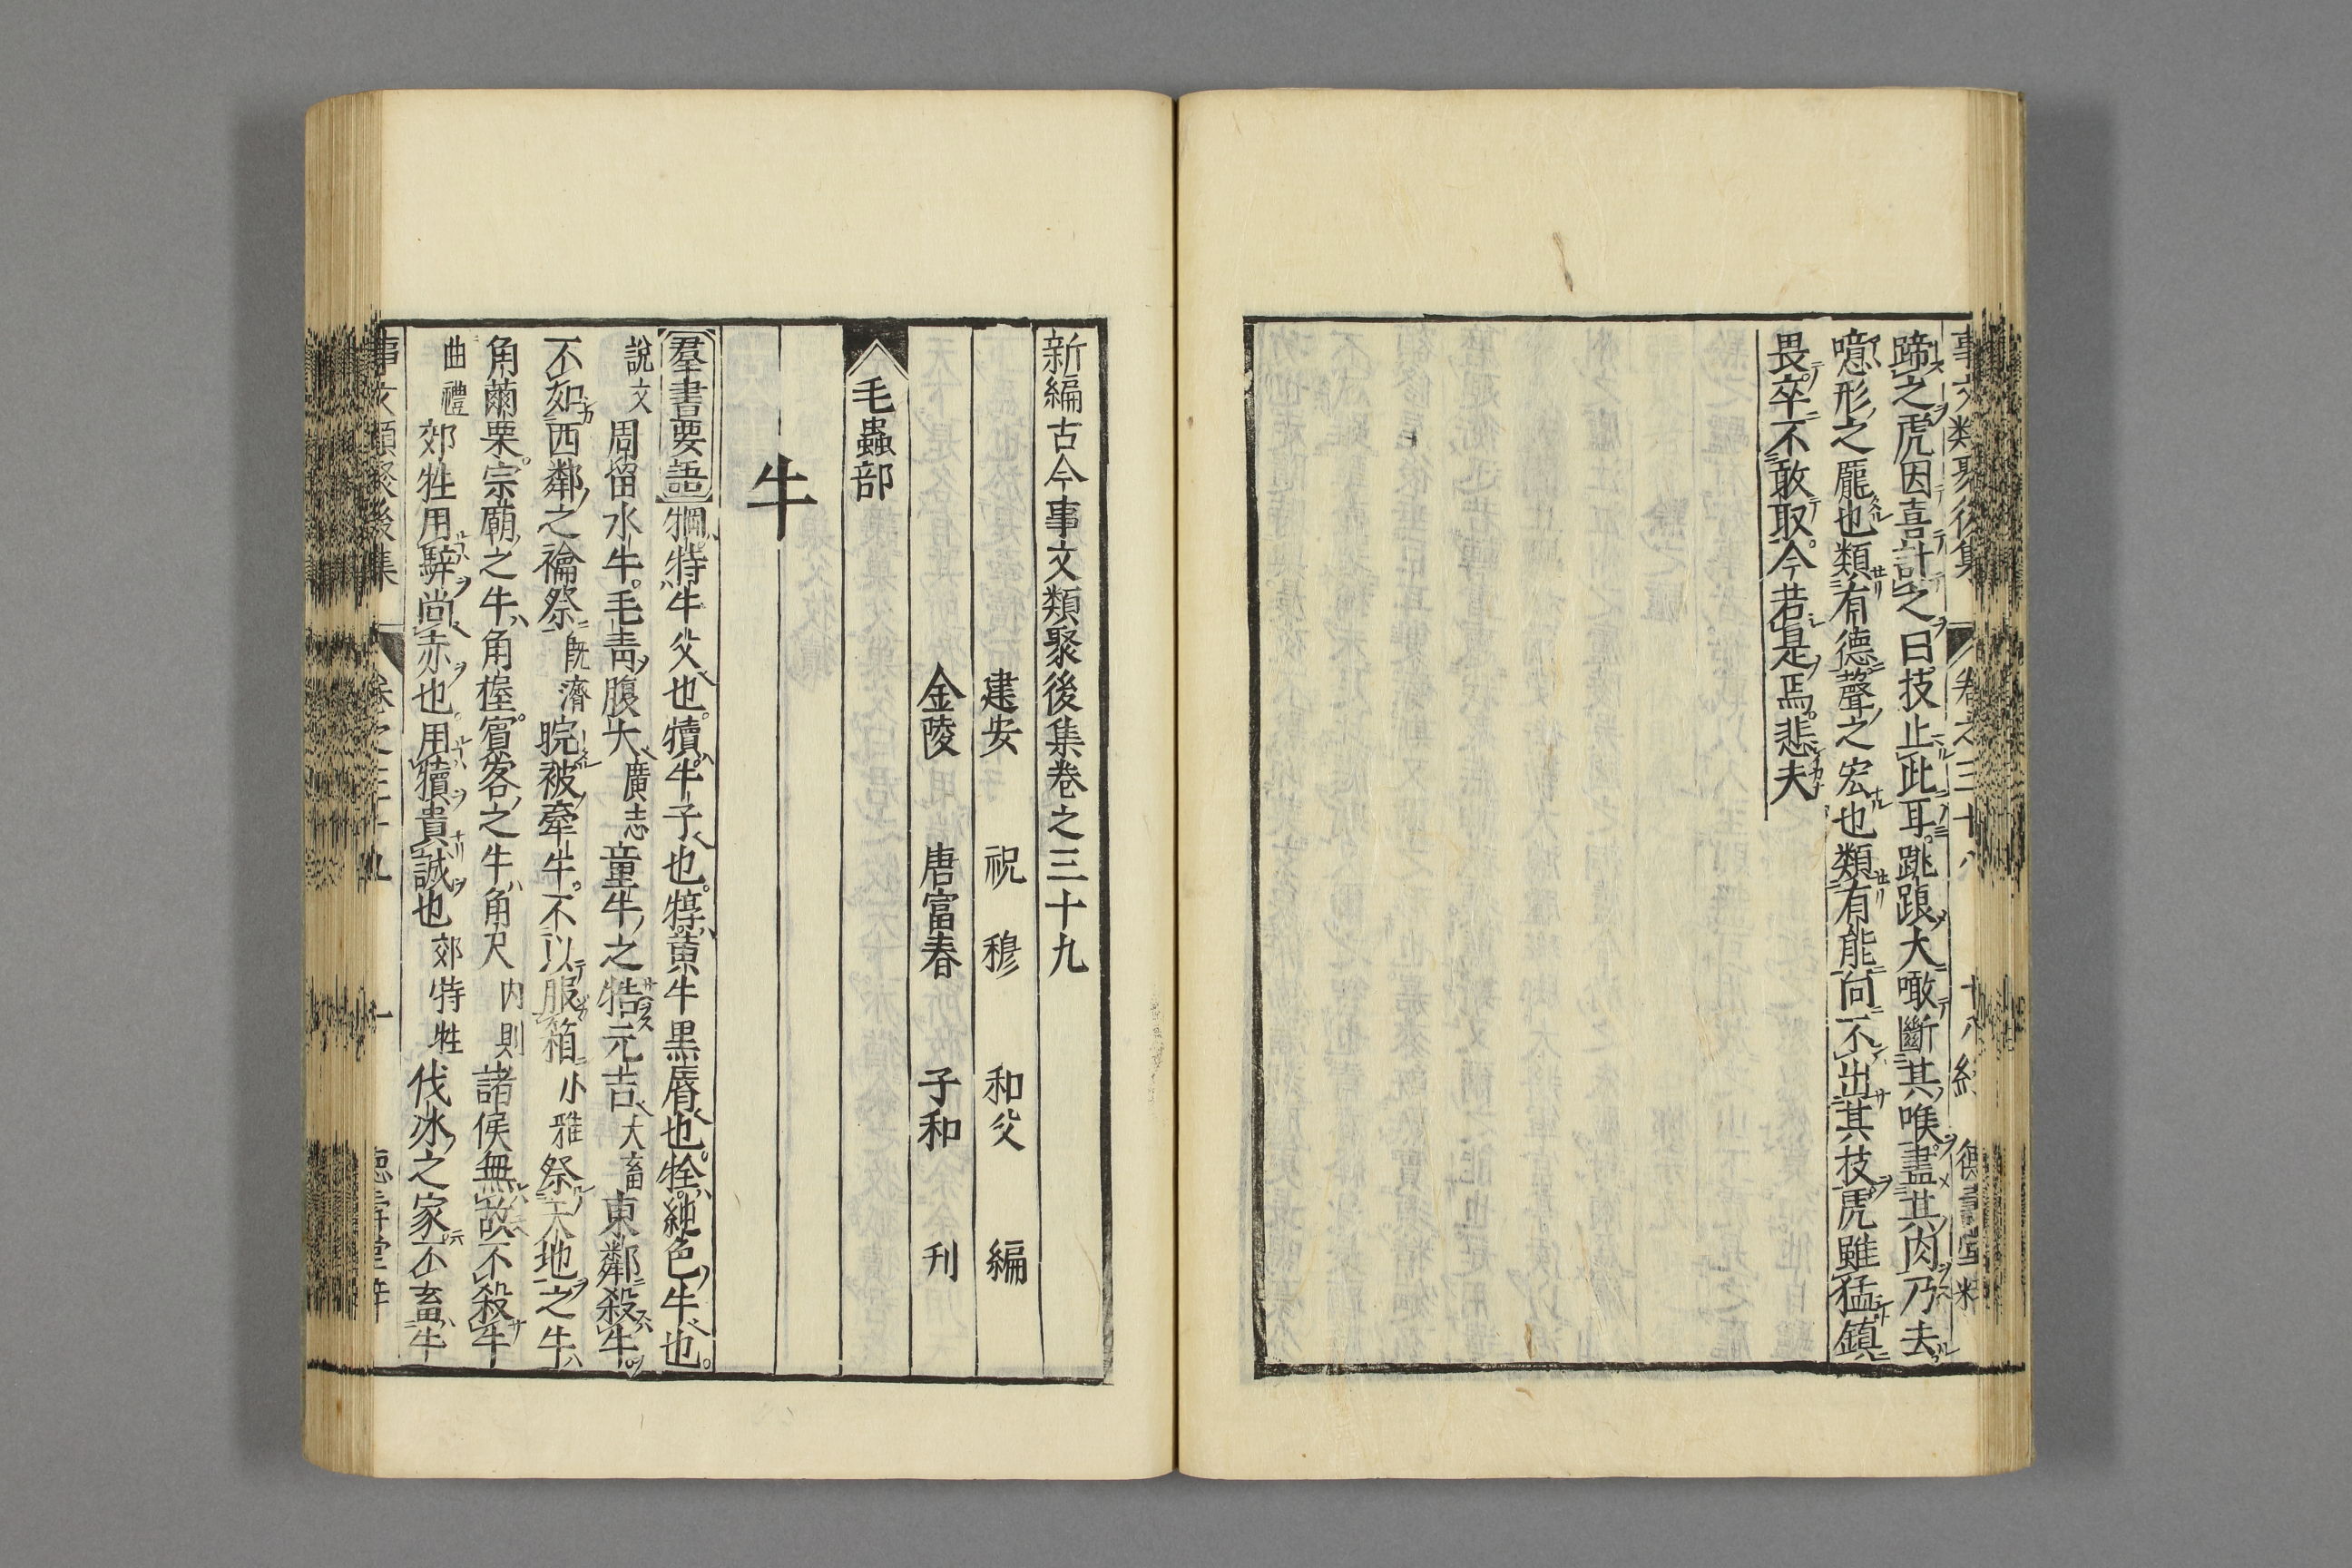 事文類聚後集 卷之三十八 十八終
蹄之虎因喜計之曰技止此耳跳踉大㘎斷其喉盡其肉乃去
噫形之龐也類有德聲之宏也類有能向不出其技虎雖猛鎮
畏卒不敢取今若是焉悲夫
新編古今事文類聚後集卷之三十九
建安 祝 穆 和父 編
金陵 唐富春 子和 刊
毛蟲部
牛
羣書要語 犅特牛父也。犢牛子也。犉黄牛黒脣也。牷純色牛也。
說文 周留水牛。毛青腹大 廣志 童牛之牿元吉 大畜 東鄰殺牛。
不如西鄰之禴祭 旣濟 睆被牽牛。不以服箱 小雅 祭天地之牛
角繭栗。宗廟之牛角握。賓客之牛角尺 内則 諸侯無故不殺牛
曲禮 郊牲用騂尚赤也。用犢貴誠也 郊特牲 伐冰之家不畜牛
事文類聚後集 卷之三十九 一 德壽堂梓